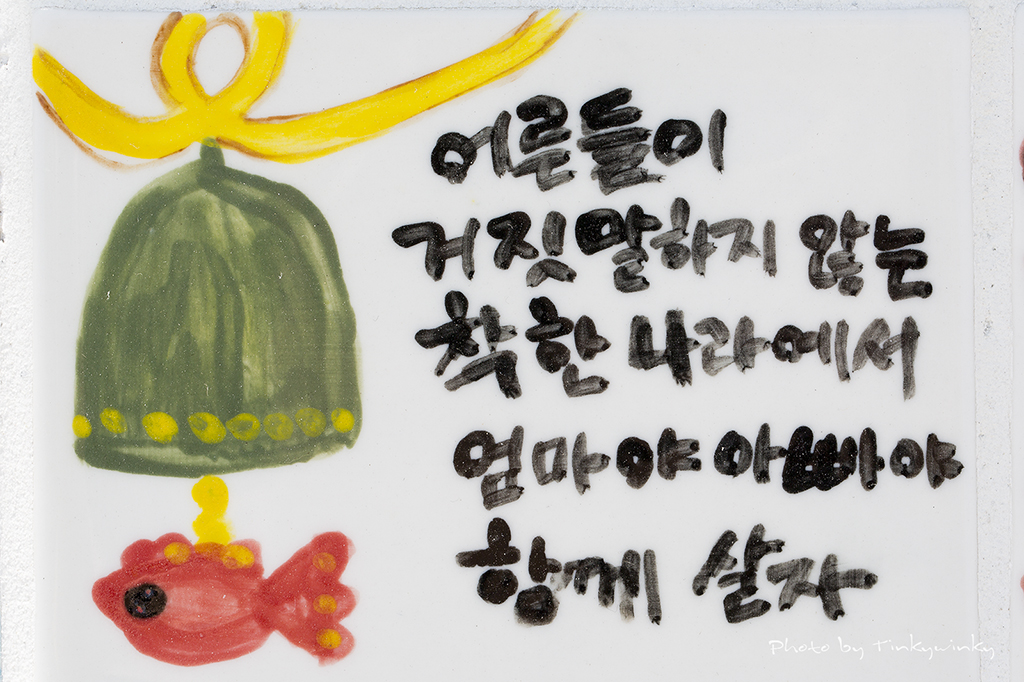 어른들이
거짓말하지 않는
착한 나라에서
엄마야 아빠야
함께 살자
Photo by Tinkywinky